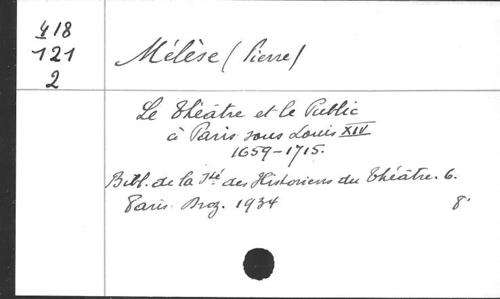 4 18
121
2
Mélèse (Pierre)
Le Théâtre et le Public
à Paris sous Louis XIV
1659-1715.
Bibl. de la Sté des Historiens du Théâtre. 6.
Paris. Droz. 1934 8°